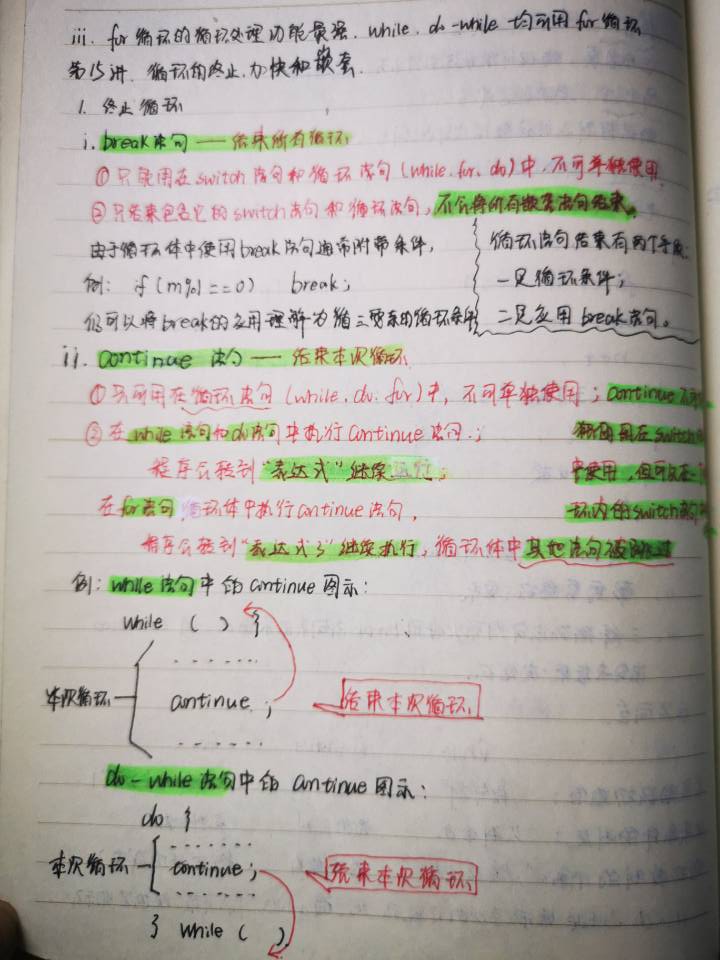 iii. for 循环的循环处理功能最强. while、do-while 均可用 for 循环
第15讲. 循环的终止、加快和嵌套.
1. 终止循环
i. break 语句 —— 结束所有循环
① 只能用在 switch 语句和循环语句 (while. for. do) 中, 不可单独使用
② 只结束包含它的 switch 语句和循环语句, 不会将所有嵌套语句结束.
由于循环体中使用 break 语句通常附带条件,
例: if (m%i==0) break;
们可以将 break 的应用理解为循三要素的循环条件
循环语句结束有两个手段:
一见循环条件;
二见应用 break 语句。
ii. continue 语句 —— 结束本次循环
① 只可用在循环语句 (while. do. for) 中, 不可单独使用; continue 不可
② 在 while 语句和 do 语句中执行 continue 语句.;
程序会转到 "表达式" 继续运行;
在 for 语句 循环体中执行 continue 语句,
程序会转到 "表达式3" 继续执行, 循环体中其他语句被跳过
用在 switch
中使用, 但可以在一
环内的 switch 语句
例: while 语句中的 continue 图示:
while ( ) {
......
本次循环 continue ; 结束本次循环
......
do-while 语句中的 continue 图示:
do {
......
本次循环 continue ; 结束本次循环
......
} while ( )